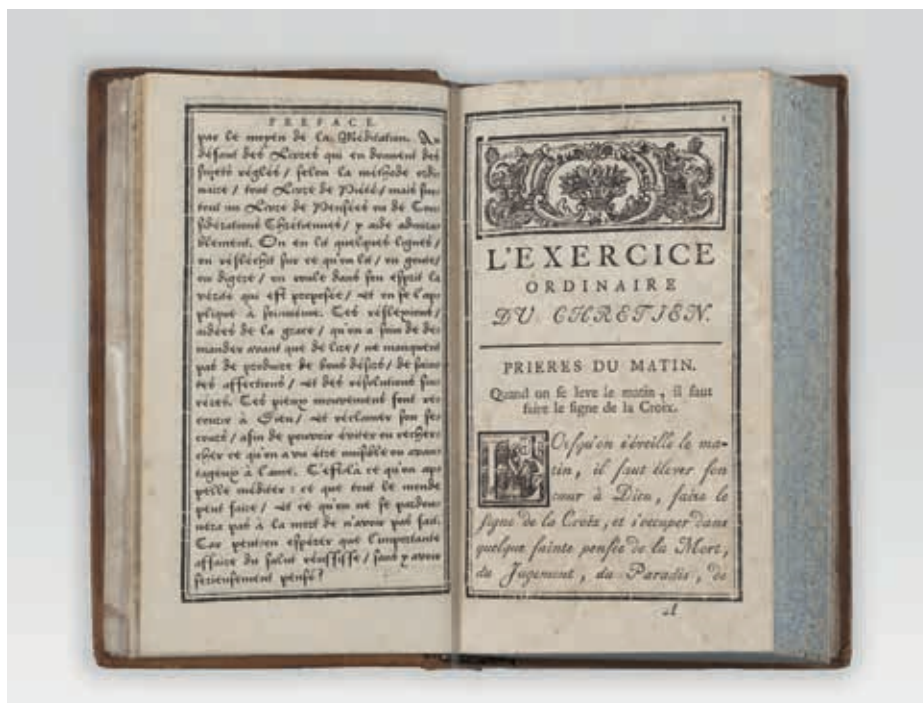 PREFACE.
par le moyen de la Méditation. Au
défaut des Livres qui en donnent des
sujets réglés / selon la méthode ordi-
naire / tout Livre de Piété / mais sur-
tout un Livre de Pensées ou de Con-
sidérations Chrétiennes / y aide admira-
blement. On en lit quelques lignes /
on réfléchit sur ce qu'on lit / on goute /
on digére / on roule dans son esprit la
vérité qui est proposée / et on se l'ap-
plique à soi-même. Ces réflexions /
aidées de la grace / qu'on a soin de de-
mander avant que de lire / ne manquent
pas de produire de bons désirs / de sain-
tes affections / et des résolutions sin-
céres. Ces pieux mouvemens font re-
courir à Dieu / et réclamer son se-
cours / afin de pouvoir éviter ou recher-
cher ce qu'on a vu être nuisible ou avan-
tageux à l'ame. C'est-là ce qu'on ap-
pelle méditer : ce que tout le monde
peut faire / et ce qu'on ne se pardon-
nera pas à la mort de n'avoir pas fait.
Car peut-on espérer que l'importante
affaire du salut réussisse / sans y avoir
serieusement pensé ?
1
L'EXERCICE
ORDINAIRE
DU CHRETIEN.
PRIERES DU MATIN.
Quand on se leve le matin, il faut
faire le signe de la Croix.
LOrsqu'on s'éveille le ma-
tin, il faut élever son
cœur à Dieu, faire le
signe de la Croix, et s'occuper dans
quelque sainte pensée de la Mort,
du Jugement, du Paradis, de
A